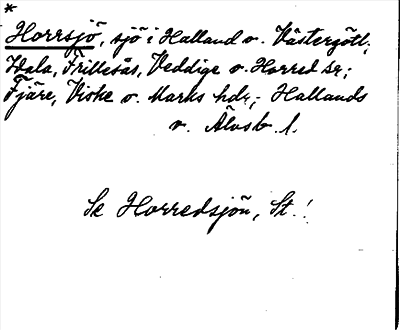 *
Horrsjö, sjö i Halland o. Västergötl.;
Idala, Frillesås, Veddige o. Horred sn;
Fjäre, Viske o. Marks hdr; Hallands
o. Älvsb. l.
Se Horredsjön, St.!